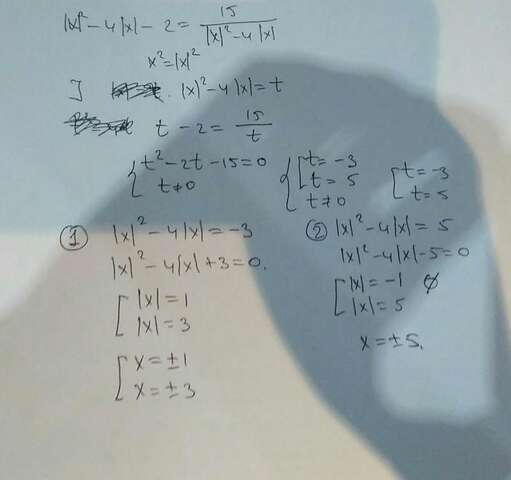 |x|² - 4|x| - 2 = 15 / (|x|² - 4|x|)
x² = |x|²
|x|² - 4|x| = t
t - 2 = 15 / t
{ t² - 2t - 15 = 0 { [ t = -3 [ t = -3
t ≠ 0 t = 5 t = 5
t ≠ 0
① |x|² - 4|x| = -3
|x|² - 4|x| + 3 = 0.
[ |x| = 1
|x| = 3
[ x = ±1
x = ±3
② |x|² - 4|x| = 5
|x|² - 4|x| - 5 = 0
[ |x| = -1 ∅
|x| = 5
x = ±5.